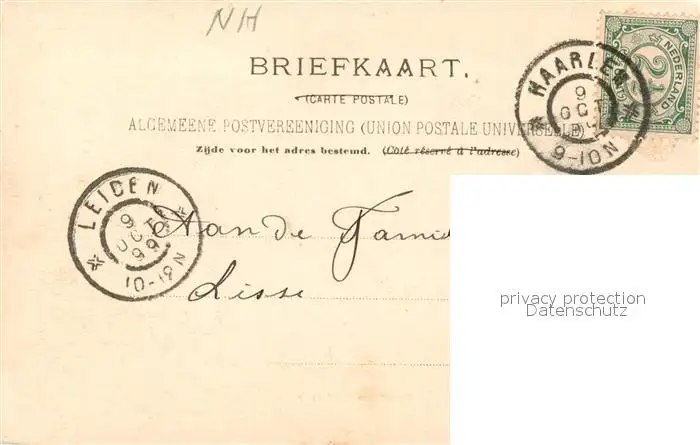 NH
BRIEFKAART.
(CARTE POSTALE)
ALGEMEENE POSTVEREENIGING (UNION POSTALE UNIVERSELLE)
Zijde voor het adres bestemd. (Côté réservé à l'adresse)
HAARLEM
9
OCT
9-10N
NEDERLAND
2½
LEIDEN
9
OCT
99
10-12N
Aan de Famil
Lisse
privacy protection
Datenschutz